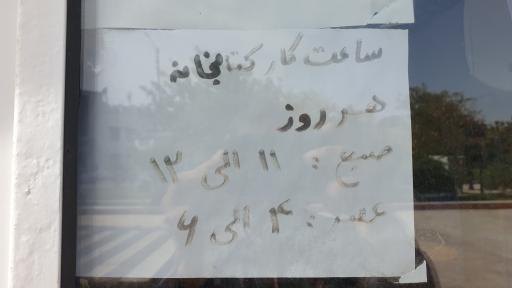 ساعت کار کتابخانه
هر روز
صبح: ۱۱ الی ۱۳
عصر: ۴ الی ۶